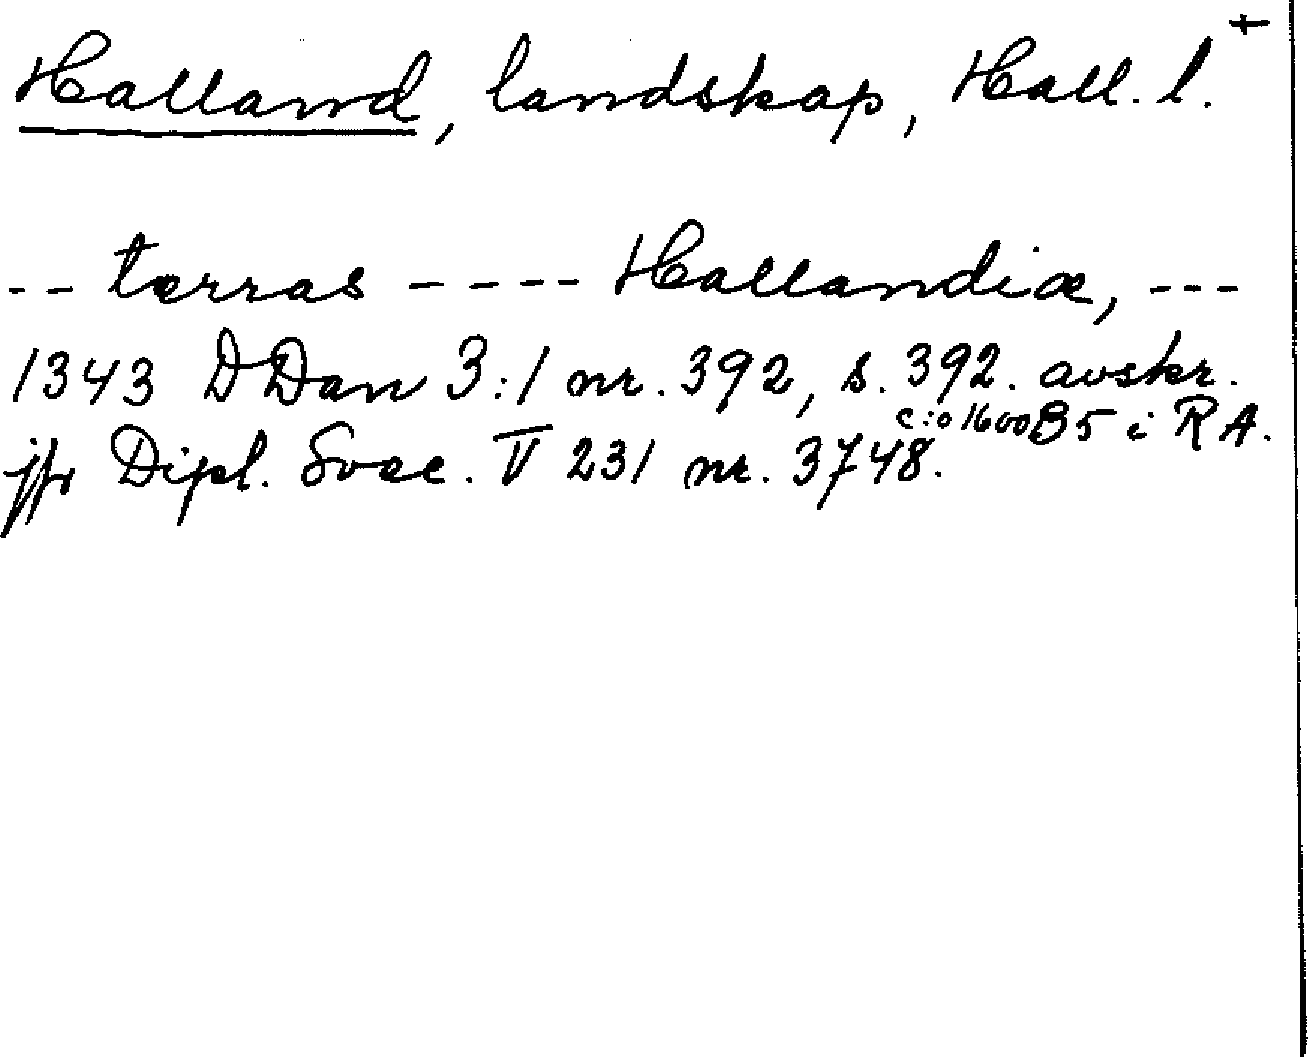 Halland, landskap, Hall. l. +
-- terras ---- Hallandiæ, ---
1343 DDan 3:1 nr. 392, s. 392. avskr.
c:o 1600 B5 i RA.
jfr Dipl. Svec. V 231 nr. 3748.